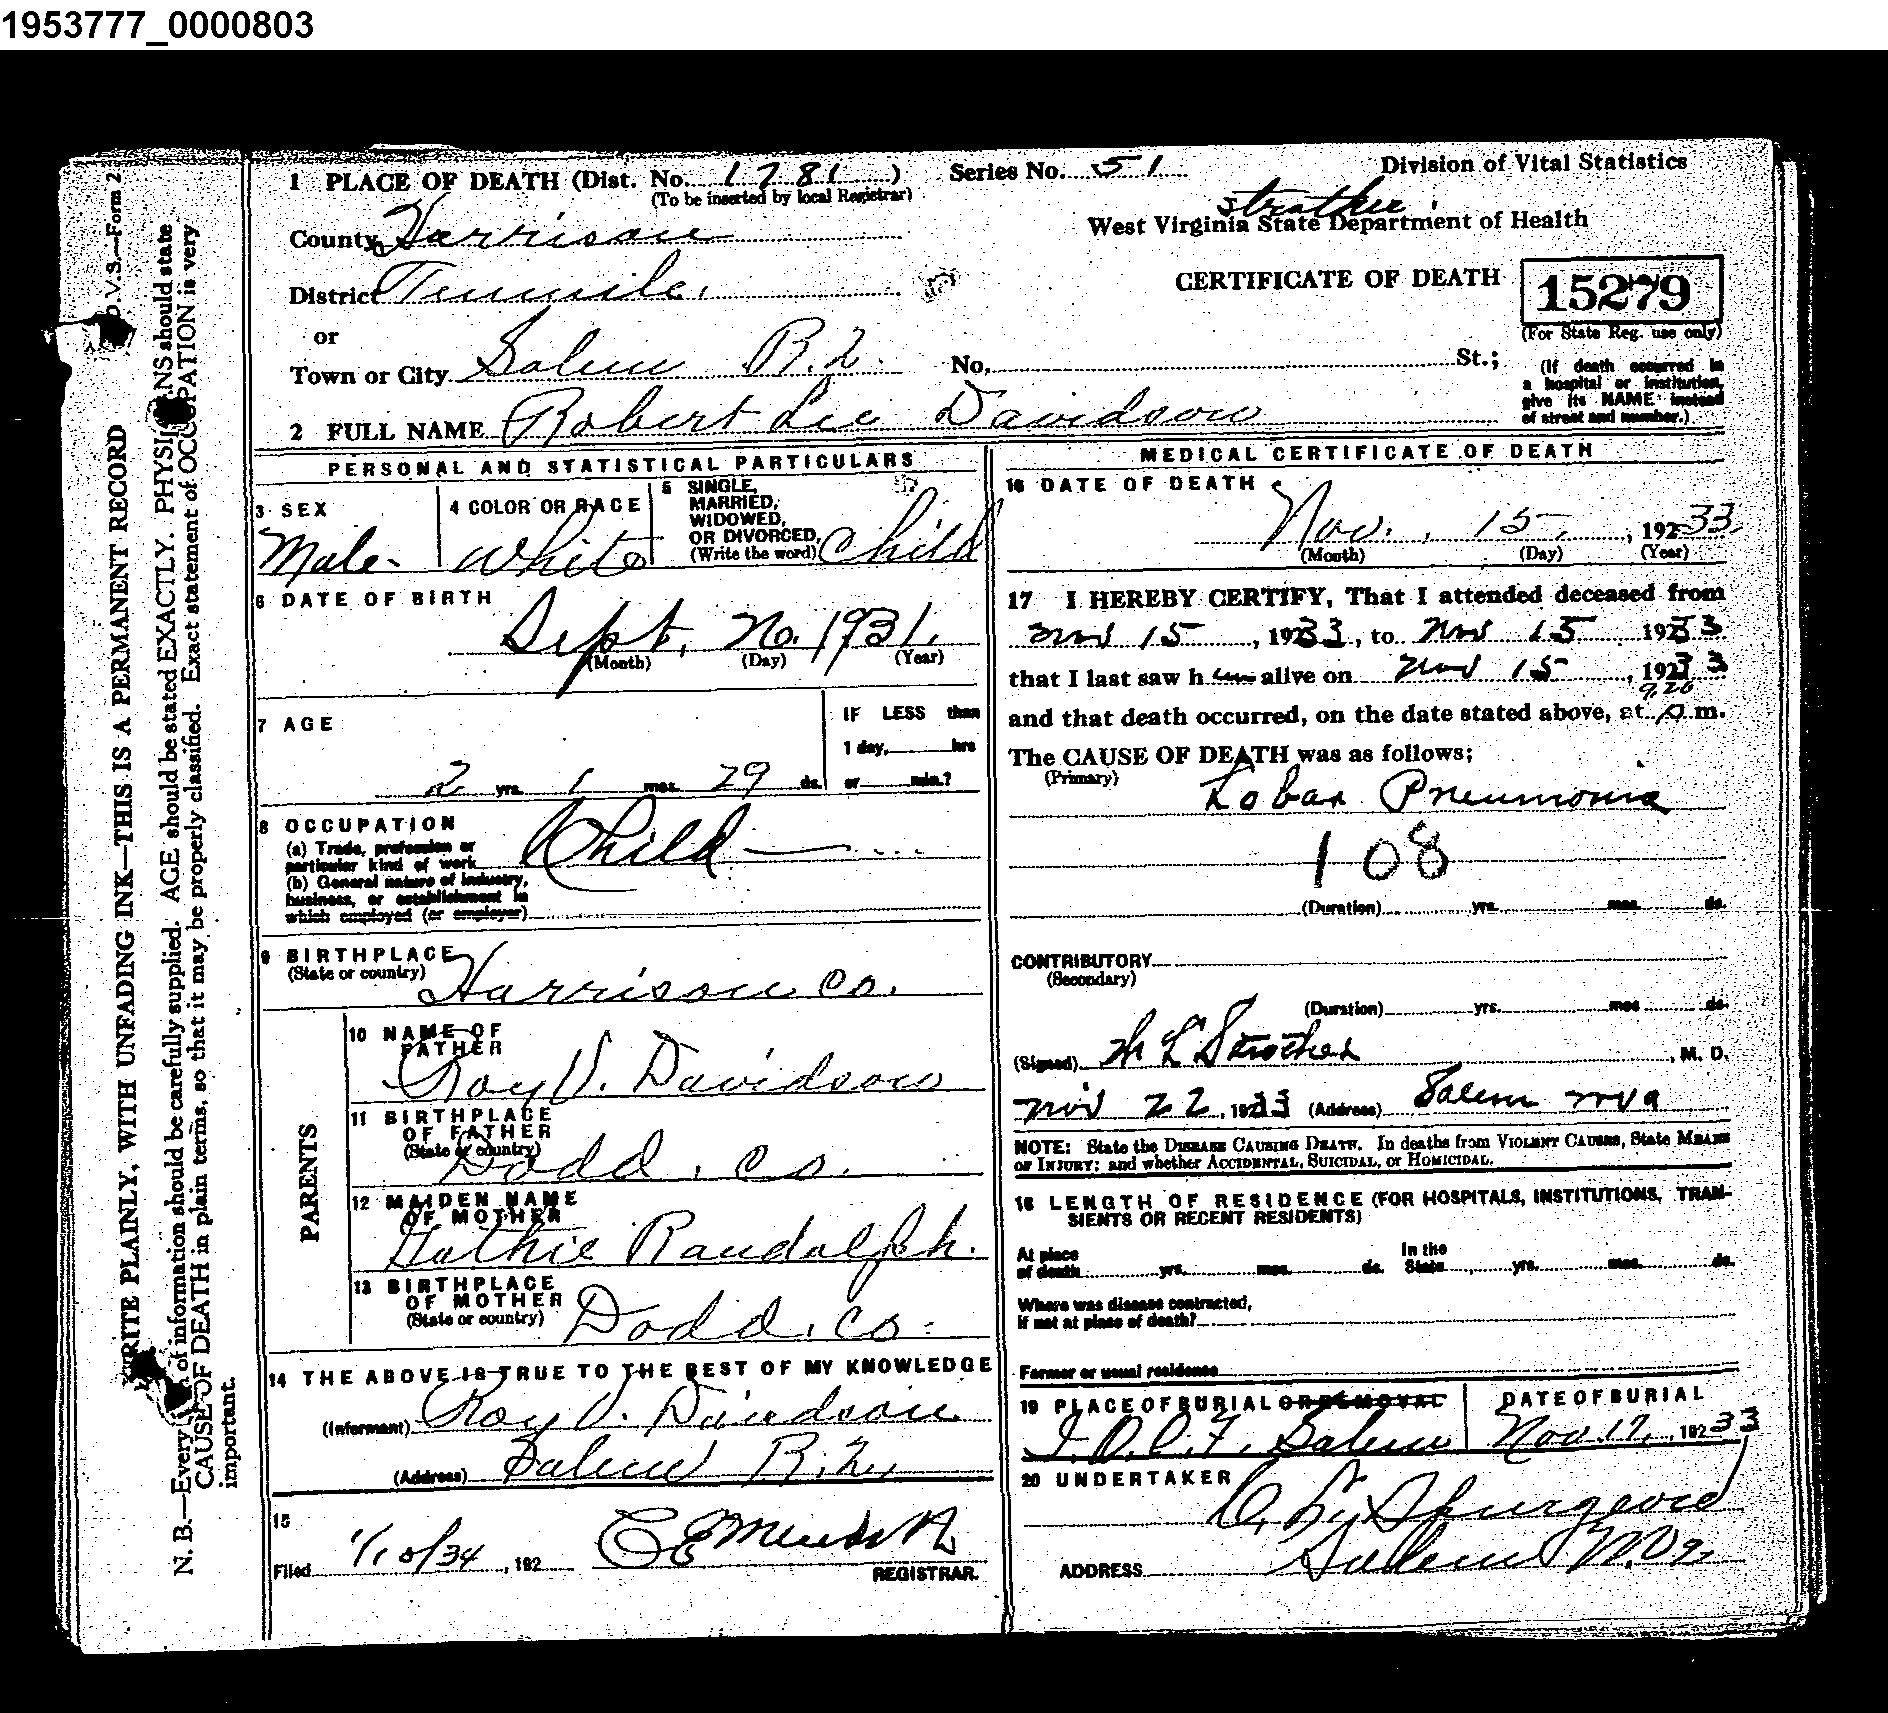 1953777_0000803
1 PLACE OF DEATH (Dist. No. 1781) Series No. 51 Division of Vital Statistics
(To be inserted by local Registrar)
County Harrison West Virginia State Department of Health
District Tenmile. CERTIFICATE OF DEATH 15279
or (For State Reg. use only)
Town or City Salem R.2. No. St.;
(If death occurred in
a hospital or institution,
give its NAME instead
of street and number.)
2 FULL NAME Robert Lee Davidson
PERSONAL AND STATISTICAL PARTICULARS
3 SEX
Male
4 COLOR OR RACE
White
5 SINGLE,
MARRIED,
WIDOWED,
OR DIVORCED,
(Write the word) Child
6 DATE OF BIRTH
Sept, No. 1931.
(Month) (Day) (Year)
7 AGE
2 yrs. 1 mos. 29 ds.
IF LESS than
1 day, hrs
or min.?
8 OCCUPATION
(a) Trade, profession or
particular kind of work Child
(b) General nature of industry,
business, or establishment in
which employed (or employer)
9 BIRTHPLACE
(State or country) Harrison Co.
PARENTS
10 NAME OF
FATHER
Roy V. Davidson
11 BIRTHPLACE
OF FATHER
(State or country)
Dodd. Co.
12 MAIDEN NAME
OF MOTHER
Randolph.
13 BIRTHPLACE
OF MOTHER
(State or country) Dodd. Co.
14 THE ABOVE IS TRUE TO THE BEST OF MY KNOWLEDGE
(Informant) Roy V. Davidson
(Address) Salem R.2,
15
Filed 1/10/34, 192
REGISTRAR.
MEDICAL CERTIFICATE OF DEATH
16 DATE OF DEATH
Nov. 15, 192 33
(Month) (Day) (Year)
17 I HEREBY CERTIFY, That I attended deceased from
Nov 15, 1933, to Nov 15 1933
that I last saw him alive on Nov 15, 1933
9,20
and that death occurred, on the date stated above, at p.m.
The CAUSE OF DEATH was as follows;
(Primary)
Lobar Pneumonia
108
(Duration) yrs. mos. ds.
CONTRIBUTORY
(Secondary)
(Duration) yrs. mos. ds.
(Signed) , M. D.
Nov 22, 1933 (Address) Salem WVa
NOTE: State the DISEASE CAUSING DEATH. In deaths from VIOLENT CAUSES, State MEANS
OF INJURY; and whether ACCIDENTAL, SUICIDAL, or HOMICIDAL.
18 LENGTH OF RESIDENCE (FOR HOSPITALS, INSTITUTIONS, TRAN-
SIENTS OR RECENT RESIDENTS)
At place
of death yrs. mos. ds.
In the
State yrs. mos. ds.
Where was disease contracted,
if not at place of death?
Former or usual residence
19 PLACE OF BURIAL OR REMOVAL
I.O.O.F. Salem
DATE OF BURIAL
Nov. 17, 192 33
20 UNDERTAKER
Spurgeon
ADDRESS Salem W.Va.
D.V.S.—Form 2
WRITE PLAINLY, WITH UNFADING INK—THIS IS A PERMANENT RECORD
N. B.—Every of information should be carefully supplied. AGE should be stated EXACTLY. PHYSICIANS should state
CAUSE OF DEATH in plain terms, so that it may be properly classified. Exact statement of OCCUPATION is very
important.